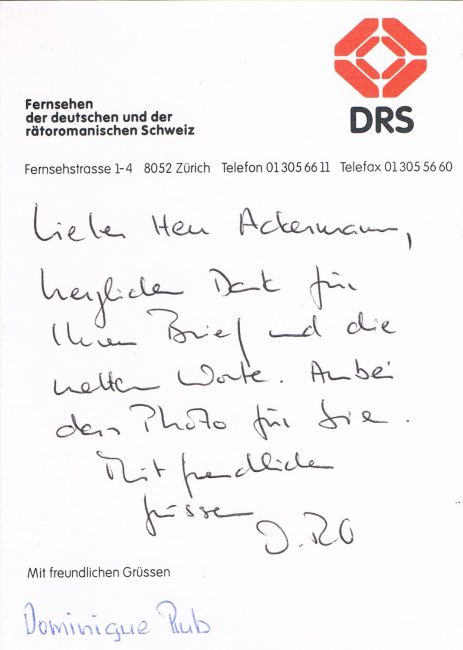 DRS
Fernsehen
der deutschen und der
rätoromanischen Schweiz
Fernsehstrasse 1-4 8052 Zürich Telefon 01 305 66 11 Telefax 01 305 56 60
Lieber Herr Ackermann,
herzlichen Dank für
Ihren Brief und die
netten Worte. Anbei
das Photo für Sie.
Mit freundlichen
Grüssen
D. Rüb
Mit freundlichen Grüssen
Dominique Rub